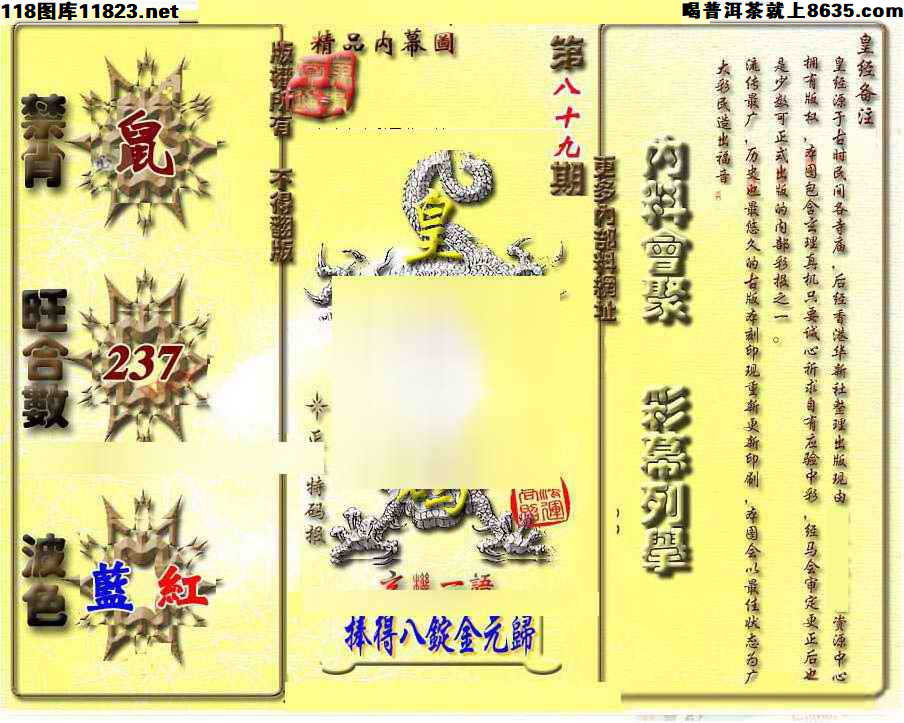 118图库11823.net
喝普洱茶就上8635.com
精品内幕圖
第八十九期
版權所有 不得翻版
更多內部料網址
禁肖
鼠
旺合數
237
波色
藍 紅
皇
特码诏
玄機一語
捧得八錠金元歸
內料會聚
彩幕列舉
皇经备注
皇经源于古时民间各寺庙，后经香港华新社整理出版现由 资源中心
拥有版权，本图包含玄理真机只要诚心祈求自有应验中彩，经马会审定更正后也
是少数可正式出版的内部彩报之一。
流传最广，历史也最悠久的古版本刻印现重新更新印刷，本图会以最佳状态为广
大彩民造出福音